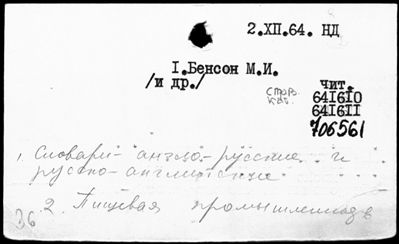 2.XII.64. НД
I.Бенсон М.И.
/и др./
Стар.
кат.
чит.
641610
641611
706561
1. Словари - англо-русские и
русско-английские
2. Пищевая промышленность
36